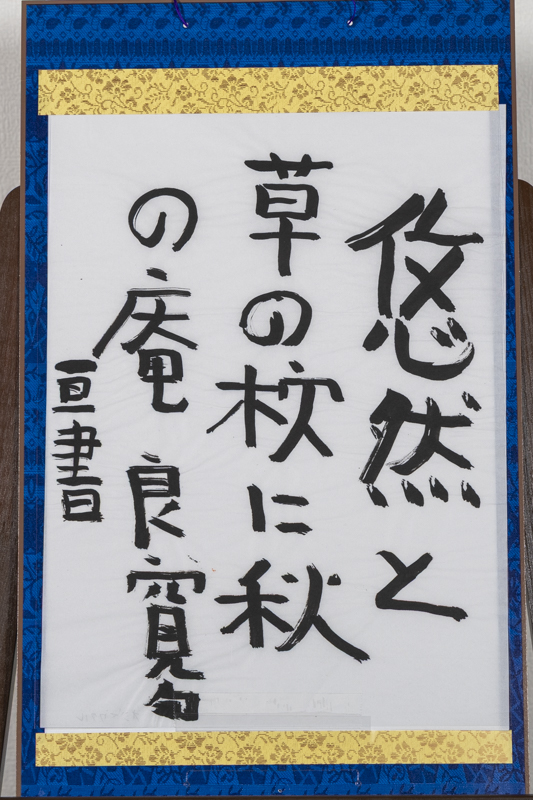 悠然と
草の枕に秋
の庵 良寛句
亘書